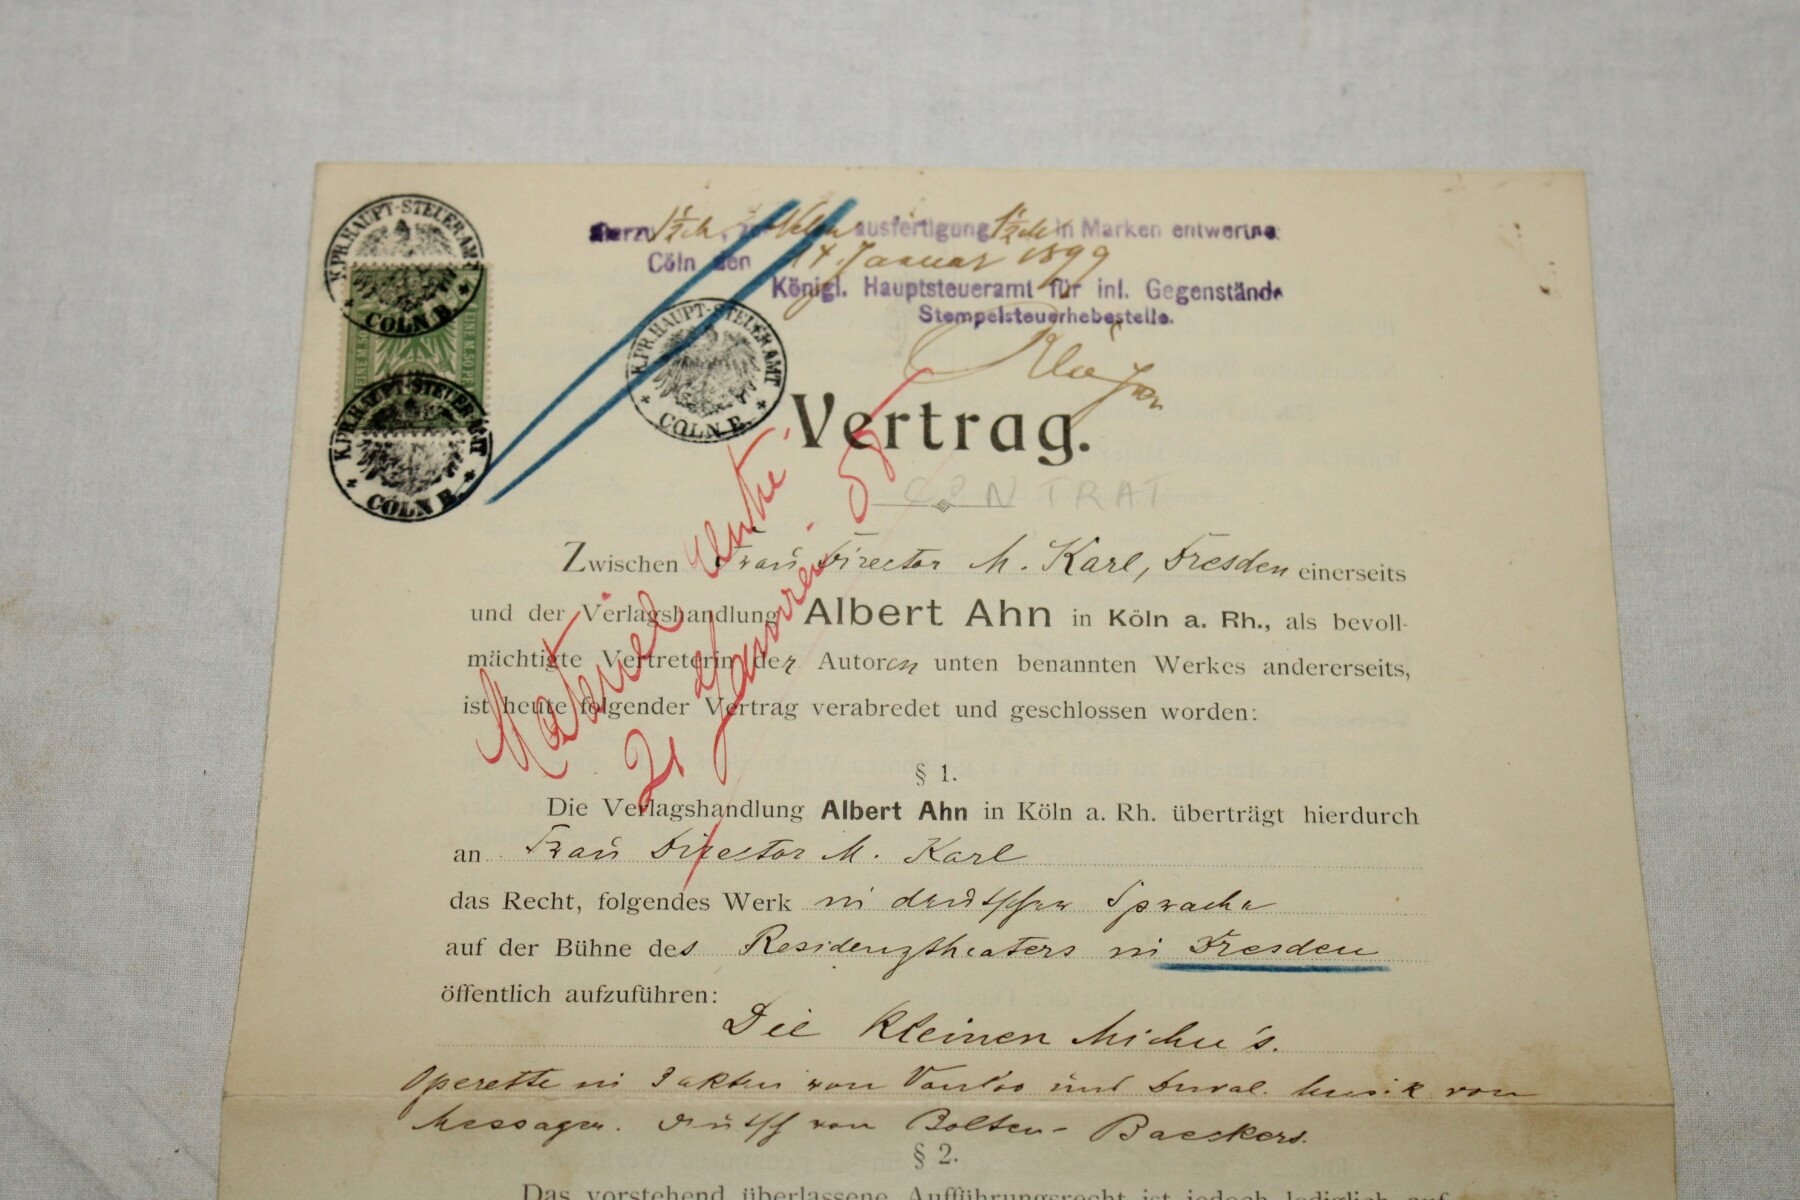 K. PR. HAUPT-STEUER-AMT
CÖLN B.
EINE M. 50 PF.
K. PR. HAUPT-STEUER-AMT
CÖLN B.
Hierzu 1½ M, zu ausfertigung 1½ M in Marken entwertet
Cöln den 14. Januar 1899
Königl. Hauptsteueramt für inl. Gegenstände
Stempelsteuerhebestelle.
K. PR. HAUPT-STEUER-AMT
CÖLN B.
Vertrag.
CONTRAT
Zwischen Frau Director M. Karl, Dresden einerseits
und der Verlagshandlung Albert Ahn in Köln a. Rh., als bevoll-
mächtigte Vertreterin der Autoren unten benannten Werkes andererseits,
ist heute folgender Vertrag verabredet und geschlossen worden:
Materiel
21 Janvrier
§ 1.
Die Verlagshandlung Albert Ahn in Köln a. Rh. überträgt hierdurch
an Frau Director M. Karl
das Recht, folgendes Werk in deutscher Sprache
auf der Bühne des Residenztheaters in Dresden
öffentlich aufzuführen:
Die kleinen Michu's.
Operette in 3 akten von Vanloo und Duval. Musik von
Messager. Deutsch von Bolten-Baeckers.
§ 2.
Das vorstehend überlassene Aufführungsrecht ist jedoch lediglich auf